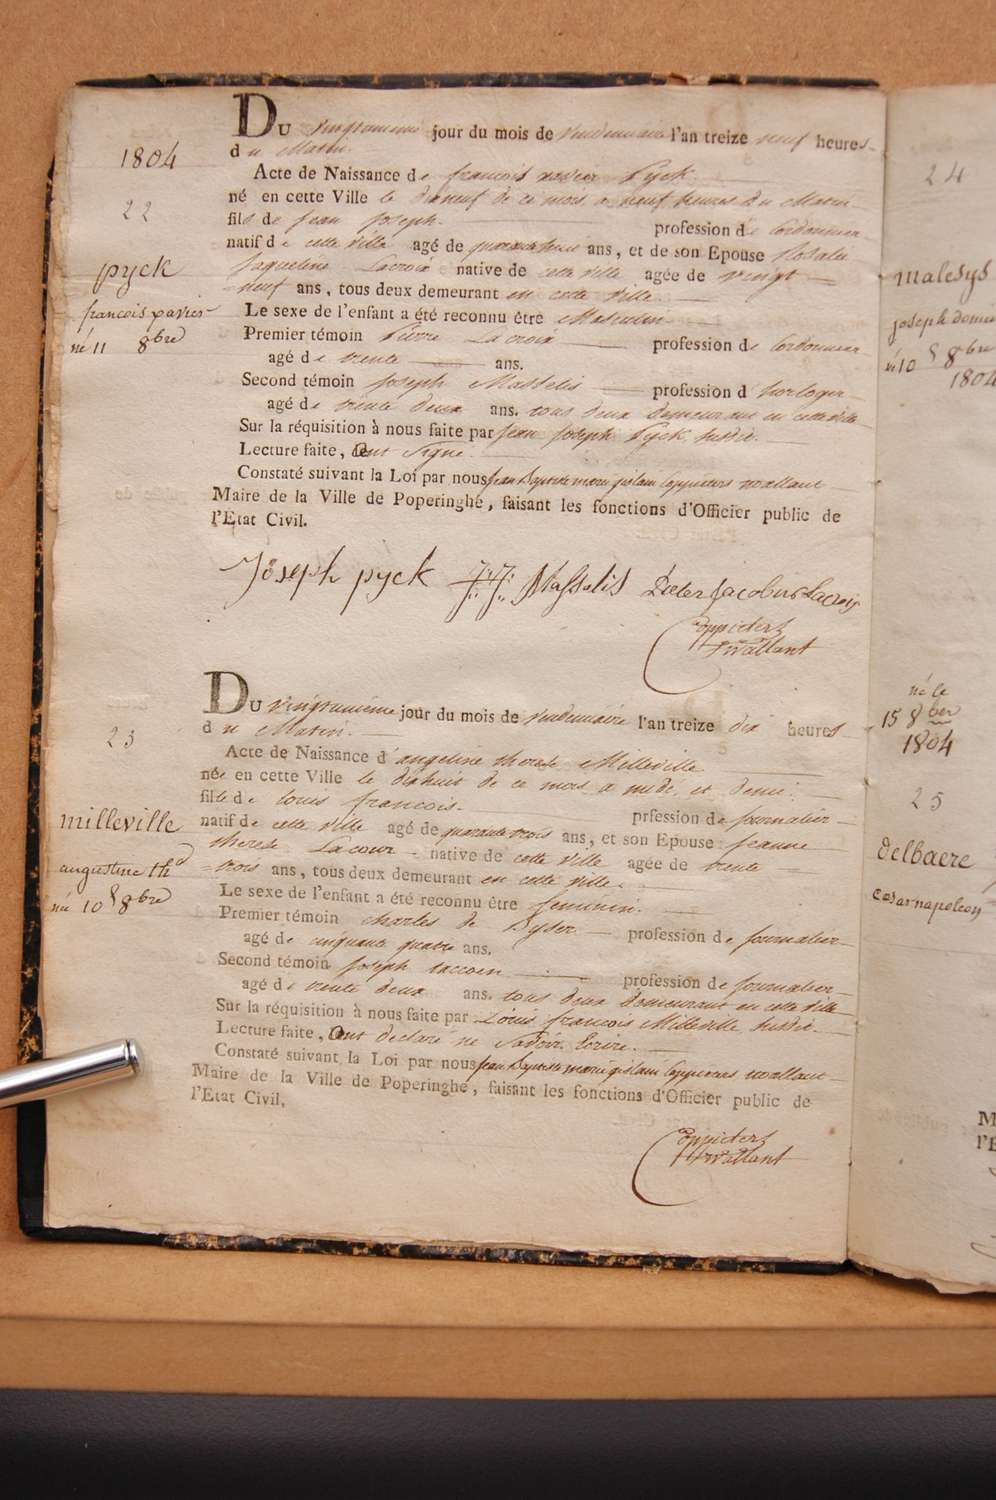 1804
22
pyck
francois xavier
né 11 8bre
Du vingtunieme jour du mois de vendemiaire l'an treize neuf heures
du Matin.
Acte de Naissance de francois xavier Pyck.
né en cette Ville le dixneuf de ce mois a neuf heures du Matin
fils de jean joseph. profession de Cordonnier
natif de cette ville agé de quarante huit ans, et de son Epouse Rosalie
Jaqueline Lacroix native de cette ville agée de vingt
neuf ans, tous deux demeurant en cette ville.
Le sexe de l'enfant a été reconnu être Masculin
Premier témoin Pierre Lacroix profession de Cordonnier
agé de trente ans.
Second témoin joseph Masselis profession d'horloger
agé de trente deux ans. tous deux demeurant en cette ville
Sur la réquisition à nous faite par jean joseph Pyck susdit.
Lecture faite, Ont Signé.
Constaté suivant la Loi par nous jean Baptiste marie gislain Coppieters wallant
Maire de la Ville de Poperinghe, faisant les fonctions d'Officier public de
l'Etat Civil.
Joseph pyck J: J: Masselis Pieter Jacobus Lacroix
Coppieters
wallant
23
milleville
augustine th
né 10 8bre
Du vingtunieme jour du mois de vendemiaire l'an treize dix heures
du Matin.
Acte de Naissance d'angeline therese Milleville
née en cette Ville le dixhuit de ce mois a midi et demie.
fille de louis francois. prfession de journalier
natif de cette ville agé de quarante trois ans, et son Epouse jeanne
therese Lacour native de cette ville agée de trente
trois ans, tous deux demeurant en cette ville.
Le sexe de l'enfant a été reconnu être feminin.
Premier témoin charles de Dyser profession de journalier
agé de cinquante quatre ans.
Second témoin joseph profession de journalier
agé de trente deux ans. tous deux demeurant en cette ville
Sur la réquisition à nous faite par Louis francois Milleville susdit.
Lecture faite, Ont declaré ne Savoir Ecrire.
Constaté suivant la Loi par nous jean Baptiste marie gislain Coppieters wallant
Maire de la Ville de Poperinghe, faisant les fonctions d'Officier public de
l'Etat Civil,
Coppieters
wallant
24
malesys
joseph
né 10 8bre
1804
né le
15 8ber
1804
25
delbaere
cesar napoleon
M
l'E